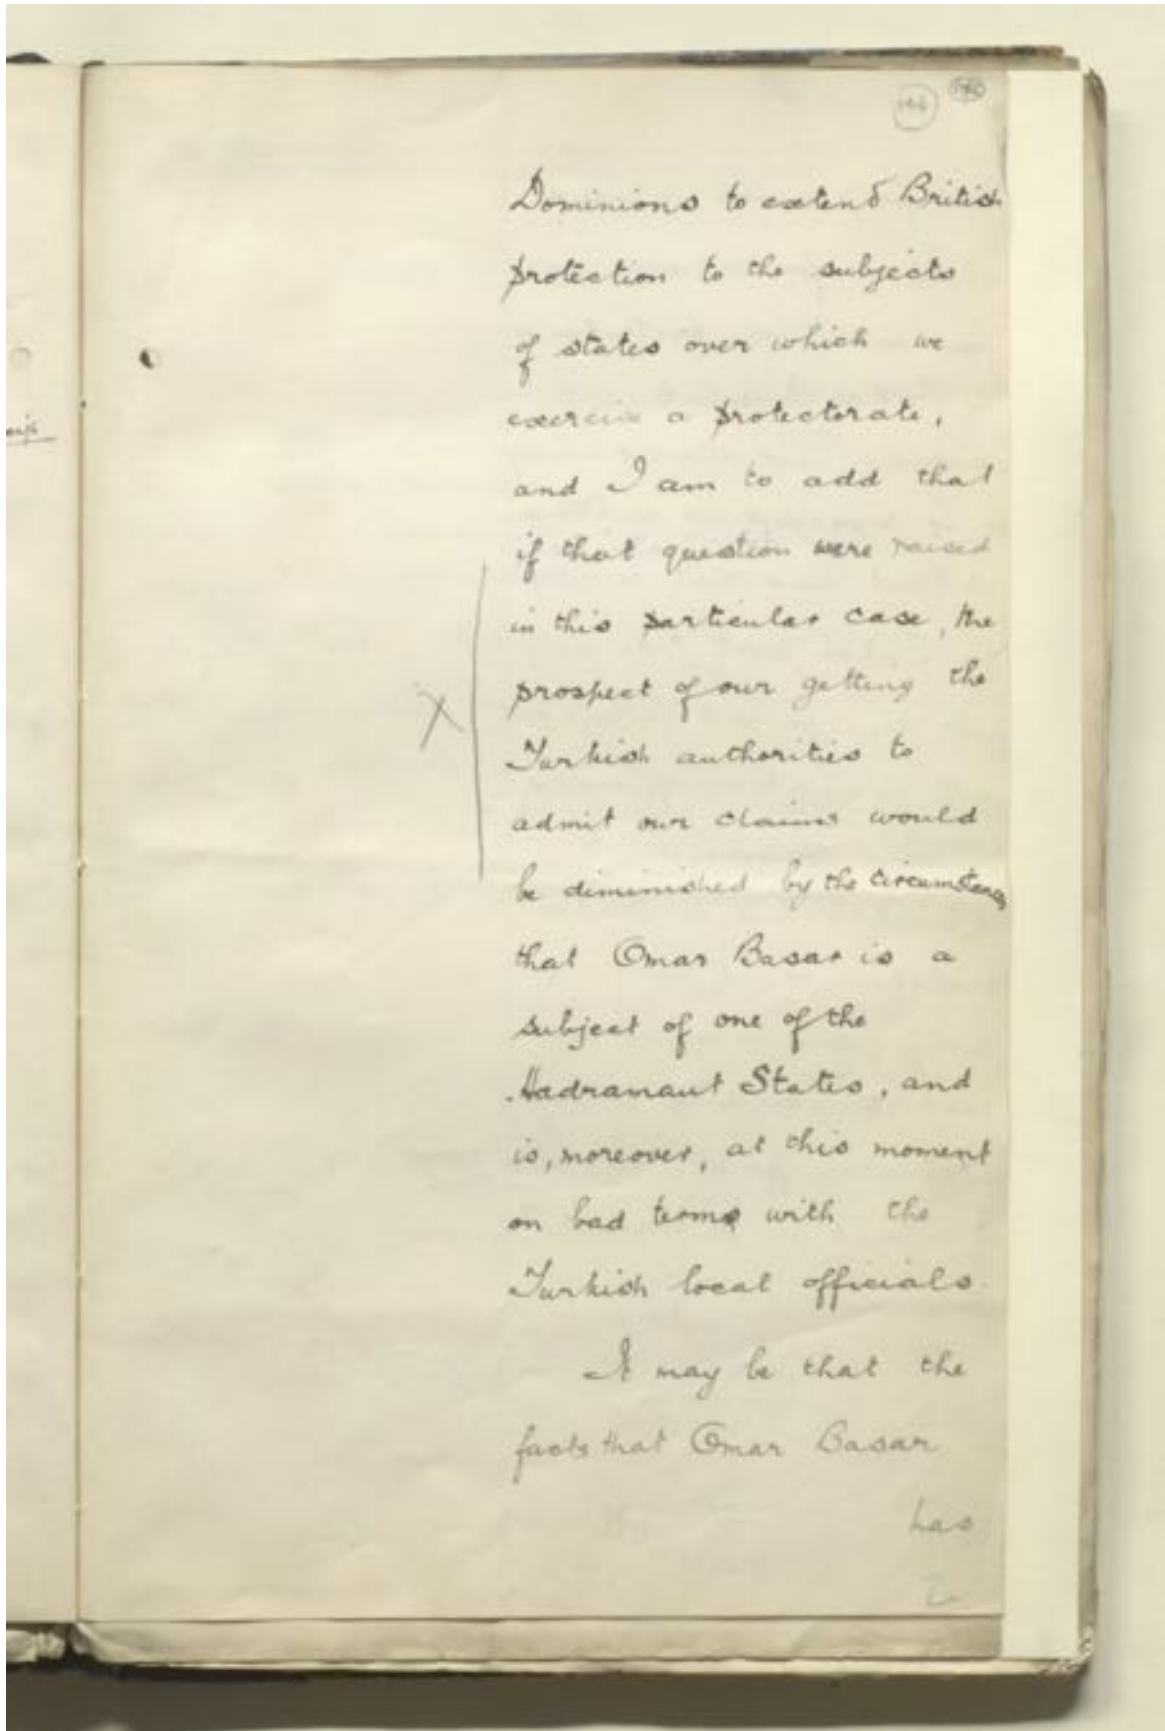 Dominions to extend British
protection to the subjects
of states over which we
exercise a protectorate,
and I am to add that
if that question were raised
in this particular case, the
prospect of our getting the
Turkish authorities to
admit our claims would
be diminished by the circumstances
that Omar Basar is a
subject of one of the
Hadramaut States, and
is, moreover, at this moment
on bad terms with the
Turkish local officials.
It may be that the
facts that Omar Basar
has